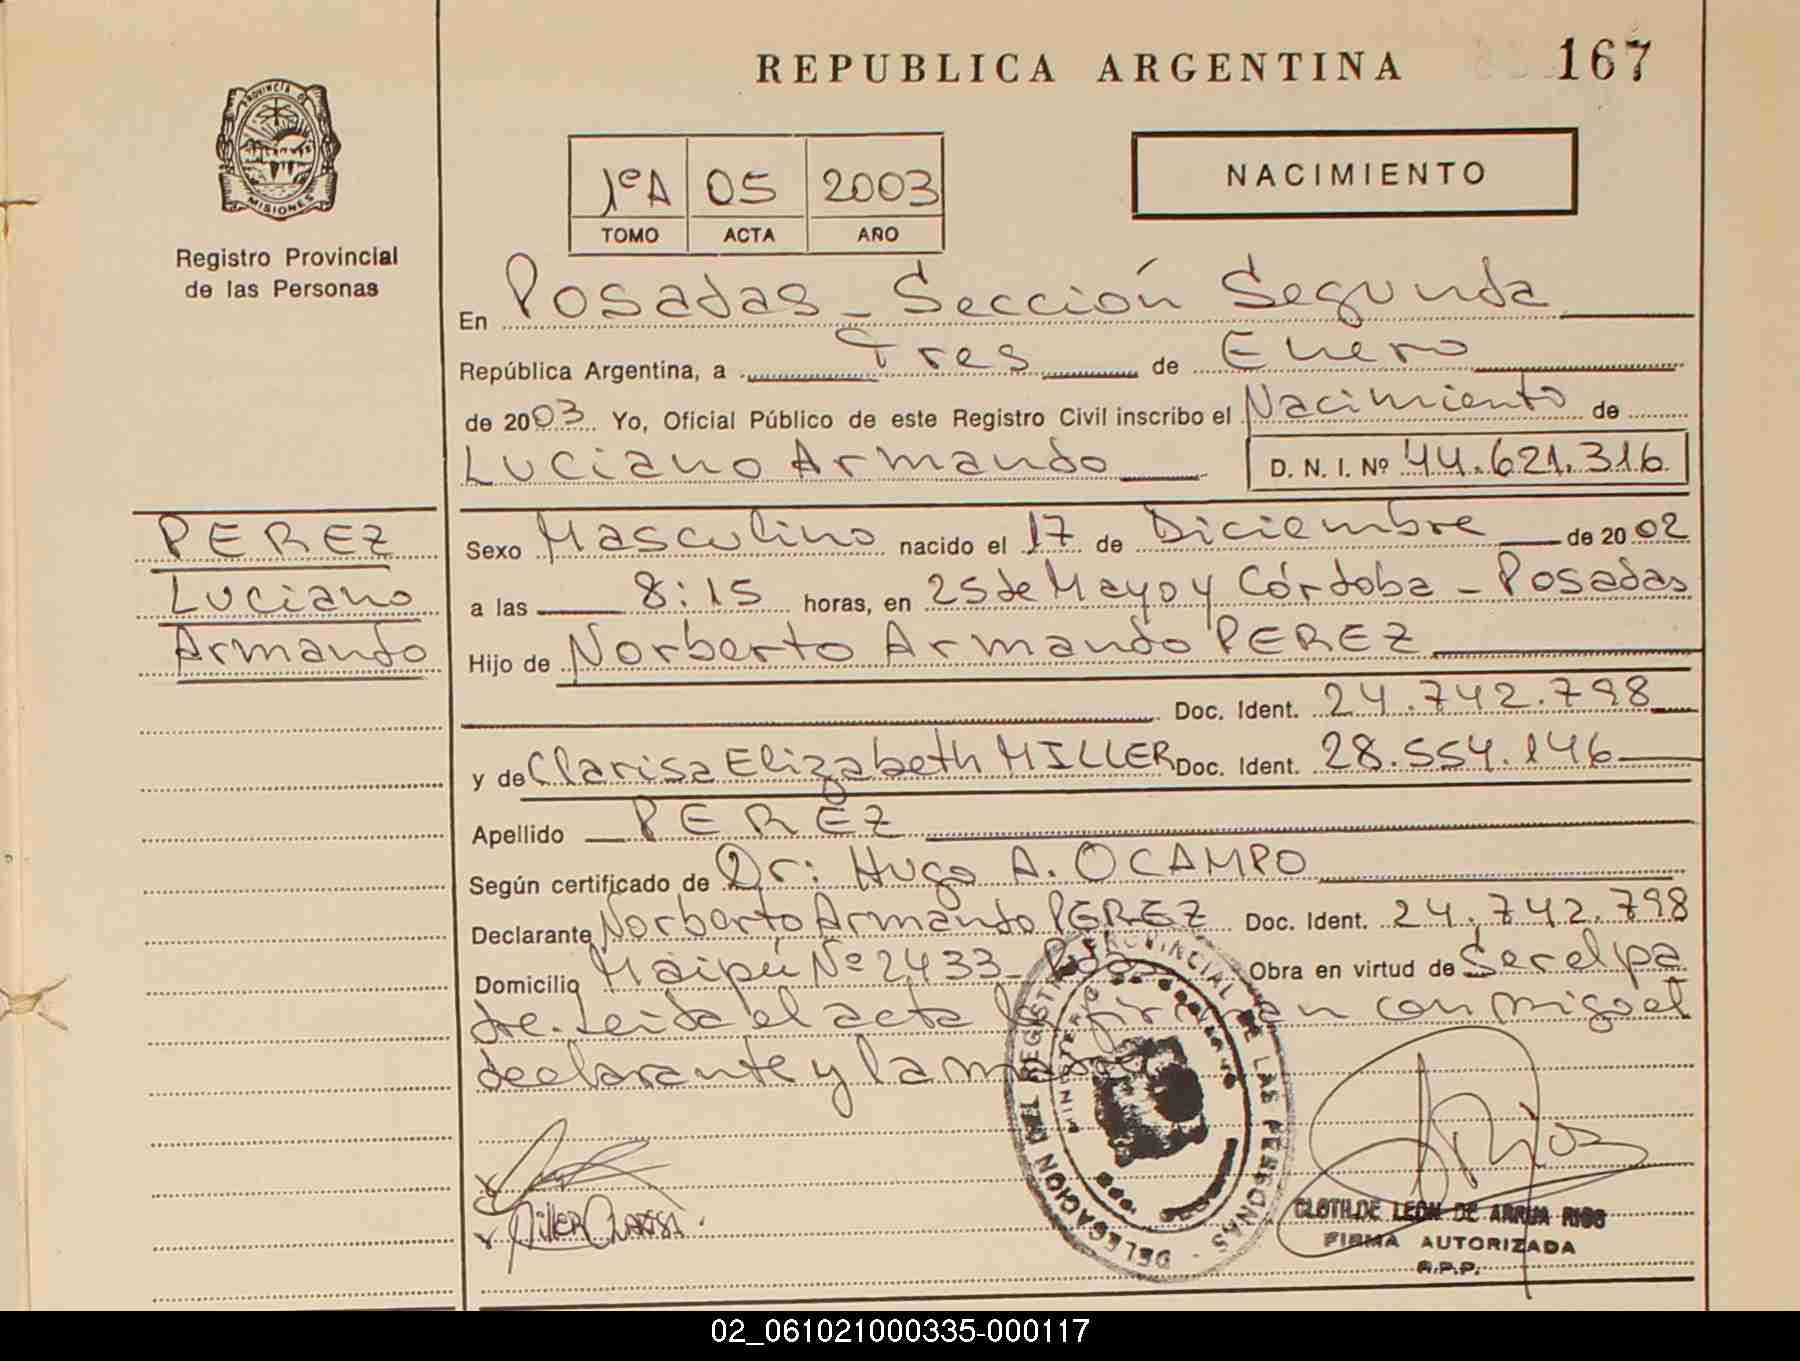 REPUBLICA ARGENTINA
167
PROVINCIA DE
MISIONES
Registro Provincial
de las Personas
1ºA 05 2003
TOMO ACTA AÑO
NACIMIENTO
En Posadas - Sección Segunda
República Argentina, a Tres de Enero
de 2003 Yo, Oficial Público de este Registro Civil inscribo el Nacimiento de
Luciano Armando D. N. I. Nº 44.621.316
PEREZ
Luciano
Armando
Sexo Masculino nacido el 17 de Diciembre de 2002
a las 8:15 horas, en 25 de Mayo y Córdoba - Posadas
Hijo de Norberto Armando PEREZ
Doc. Ident. 24.742.798
y de Clarisa Elizabeth MILLER Doc. Ident. 28.554.146
Apellido PEREZ
Según certificado de Dr: Hugo A. OCAMPO
Declarante Norberto Armando PEREZ Doc. Ident. 24.742.798
Domicilio Maipú Nº 2433 - Obra en virtud de Ser el pa
dre. Leida el acta la firman conmigo el
declarante y la madre
DELEGACION DEL REGISTRO PROVINCIAL DE LAS PERSONAS
MINISTERIO
CLOTILDE LEON DE ARRUA RIOS
FIRMA AUTORIZADA
R.P.P.
02_061021000335-000117